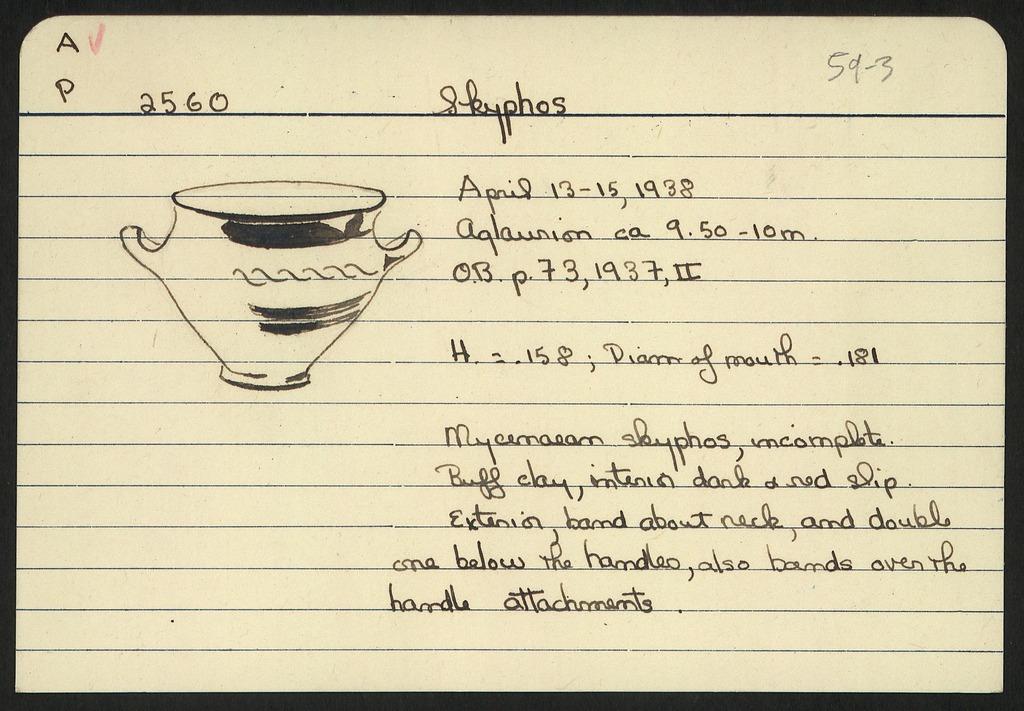 A ✓
59-3
P 2560 Skyphos
April 13-15, 1938
Aglaurion ca 9.50-10m.
O.B. p. 73, 1937, II
H. = .158; Diam of mouth = .181
Mycenaean skyphos, incomplete.
Buff clay, interior dark & red slip.
Exterior, band about neck, and double
one below the handles, also bands over the
handle attachments.